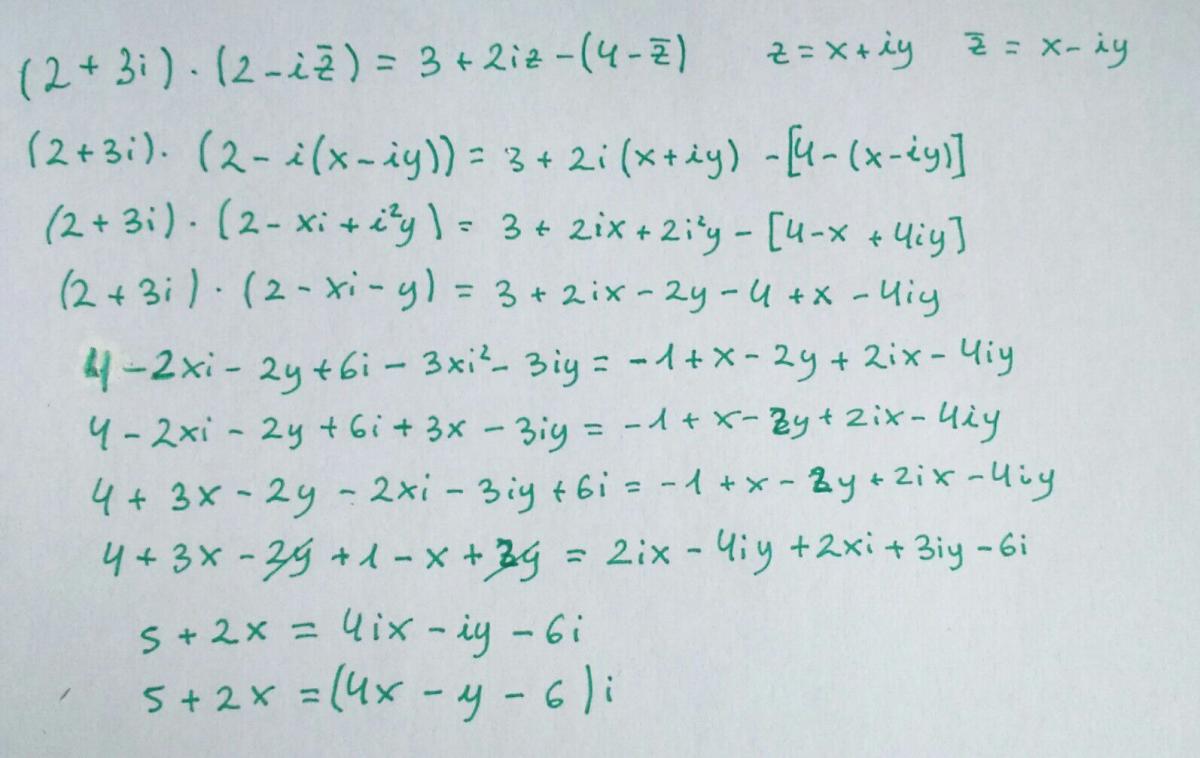 (2+3i)·(2-iz̄) = 3+2iz-(4-z̄) z=x+iy z̄=x-iy
(2+3i)·(2-i(x-iy)) = 3+2i(x+iy) -[4-(x-iy)]
(2+3i)·(2-xi+i²y) = 3+2ix+2i²y-[4-x+4iy]
(2+3i)·(2-xi-y) = 3+2ix-2y-4+x-4iy
4-2xi-2y+6i-3xi²-3iy = -1+x-2y+2ix-4iy
4-2xi-2y+6i+3x-3iy = -1+x-2y+2ix-4iy
4+3x-2y-2xi-3iy+6i = -1+x-2y+2ix-4iy
4+3x-2y+1-x+2y = 2ix-4iy+2xi+3iy-6i
5+2x = 4ix-iy-6i
5+2x = (4x-y-6)i